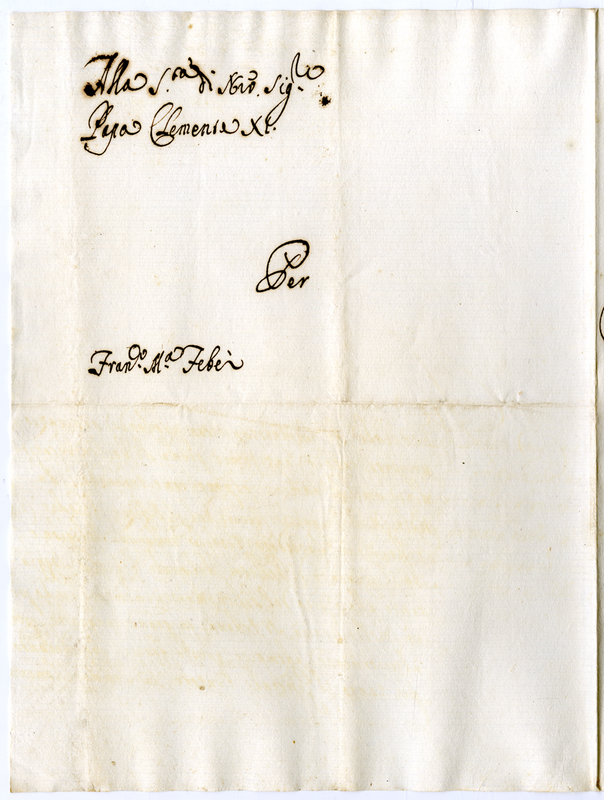 Alla S.tà di Nro. Sig.re
Papa Clemente XI.
Per
Fran.co M.a Febei